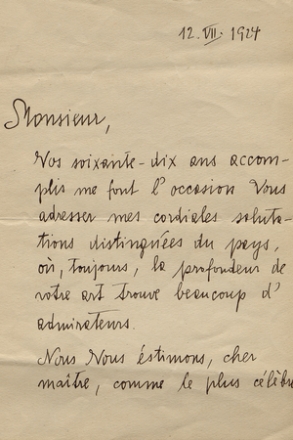 12. VII. 1924
Monsieur,
Vos soixante-dix ans accom-
plis me font l'occasion Vous
adresser mes cordiales saluta-
tions distinguées du pays,
où, toujours, la profondeur de
votre art trouve beaucoup d'
admirateurs.
Nous Vous éstimons, cher
maître, comme le plus célèbre